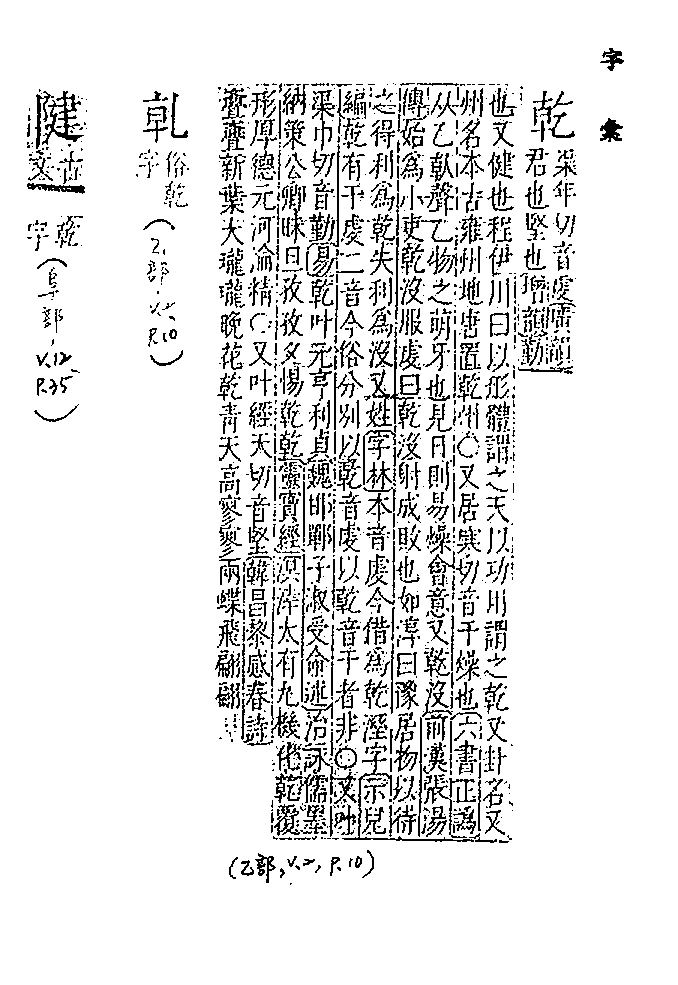 字彙
乾
渠年切音虔廣韻
君也堅也增韻勤
也又健也程伊川曰以形體謂之天以功用謂之乾又卦名又
州名本古雍州地唐置乾州○又居寒切音干燥也六書正譌
从乙倝聲乙物之萌牙也見日則易燥會意又乾沒前漢張湯
傳始爲小吏乾沒服虔曰乾沒射成敗也如淳曰豫居物以待
之得利爲乾失利爲沒又姓字林本音虔今借爲乾溼字示兒
編乾有干虔二音今俗分別以乾音虔以乹音干者非○又叶
渠巾切音勤易乾叶元亨利貞魏邯鄲子淑受命述治詠儒墨
納策公卿昧旦孜孜夕惕乾乾靈寶經溟涬大有九機化乾覆
形厚德元河淪精○又叶經天切音堅韓昌黎感春詩
亹亹新葉大瓏瓏晚花乾青天高寥寥兩蝶飛翩翩
(乙部, V.2, P.10)
乹
俗乾
字
(乙部, V.2, P.10)
古
文
乾
字
(阜部, V.12, P.35)